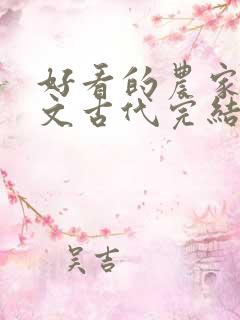 好看的農家
文古代完結
吴吉